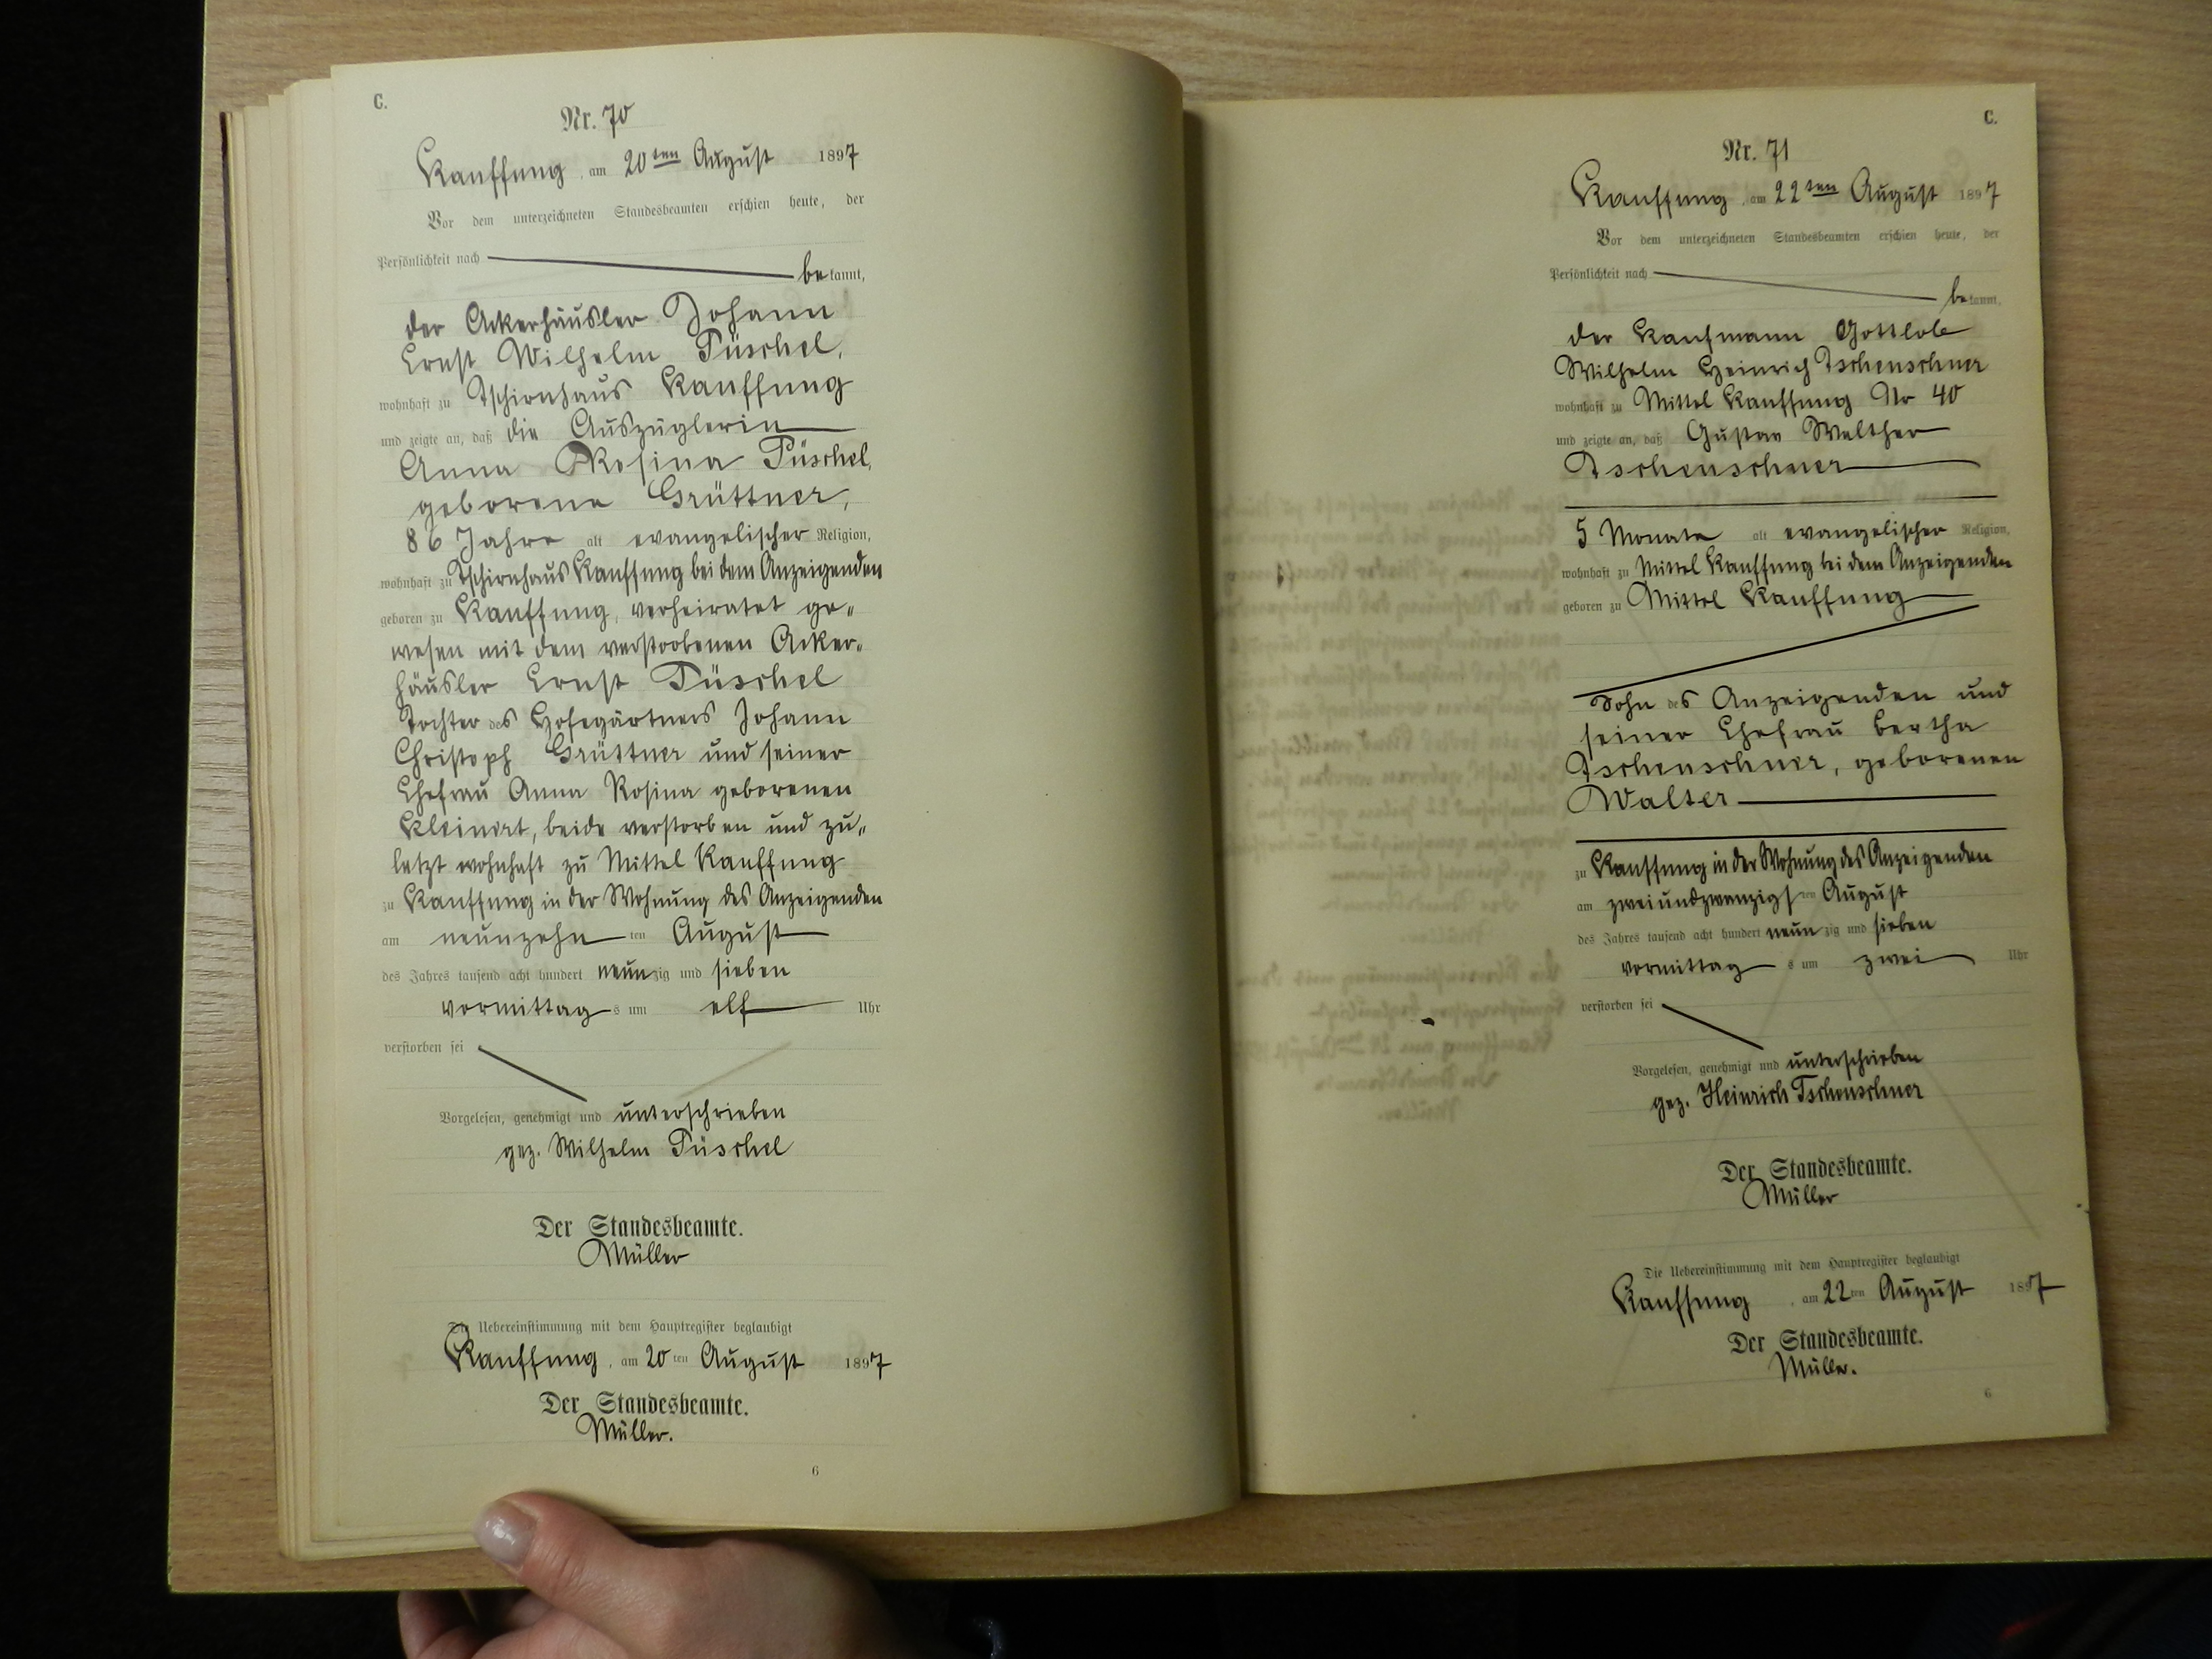 C.
Nr. 70
Kauffung, am 20ten August 1897
Vor dem unterzeichneten Standesbeamten erschien heute, der
Persönlichkeit nach
bekannt,
der Ackerhäusler Johann
Ernst Wilhelm Püschel,
wohnhaft zu Tschirnhaus Kauffung
und zeigte an, daß die Auszüglerin
Anna Rosina Püschel,
geborene Grüttner,
86 Jahre alt evangelischer Religion,
wohnhaft zu Tschirnhaus Kauffung bei dem Anzeigenden
geboren zu Kauffung, verheiratet ge„
wesen mit dem verstorbenen Acker„
häusler Ernst Püschel
Tochter des Hofegärtners Johann
Christoph Grüttner und seiner
Ehefrau Anna Rosina geborenen
Kleinert, beide verstorben und zu„
letzt wohnhaft zu Mittel Kauffung
zu Kauffung in der Wohnung des Anzeigenden
am neunzehn ten August
des Jahres tausend acht hundert neunzig und sieben
vormittags um elf Uhr
verstorben sei
Vorgelesen, genehmigt und unterschrieben
gez. Wilhelm Püschel
Der Standesbeamte.
Müller
Die Uebereinstimmung mit dem Hauptregister beglaubigt
Kauffung, am 20ten August 1897
Der Standesbeamte.
Müller.
6
C.
Nr. 71
Kauffung, am 22ten August 1897
Vor dem unterzeichneten Standesbeamten erschien heute, der
Persönlichkeit nach
bekannt,
der Kaufmann Gottlob
Wilhelm Heinrich Tschenschner
wohnhaft zu Mittel Kauffung Nr 40
und zeigte an, daß Gustav Walther
Tschenschner
5 Monate alt evangelischer Religion,
wohnhaft zu Mittel Kauffung bei dem Anzeigenden
geboren zu Mittel Kauffung
Sohn des Anzeigenden und
seiner Ehefrau Bertha
Tschenschner, geborenen
Walter
zu Kauffung in der Wohnung des Anzeigenden
am zweiundzwanzigsten August
des Jahres tausend acht hundert neunzig und sieben
vormittags um zwei Uhr
verstorben sei
Vorgelesen, genehmigt und unterschrieben
gez. Heinrich Tschenschner
Der Standesbeamte.
Müller
Die Uebereinstimmung mit dem Hauptregister beglaubigt
Kauffung, am 22ten August 1897
Der Standesbeamte.
Müller.
6